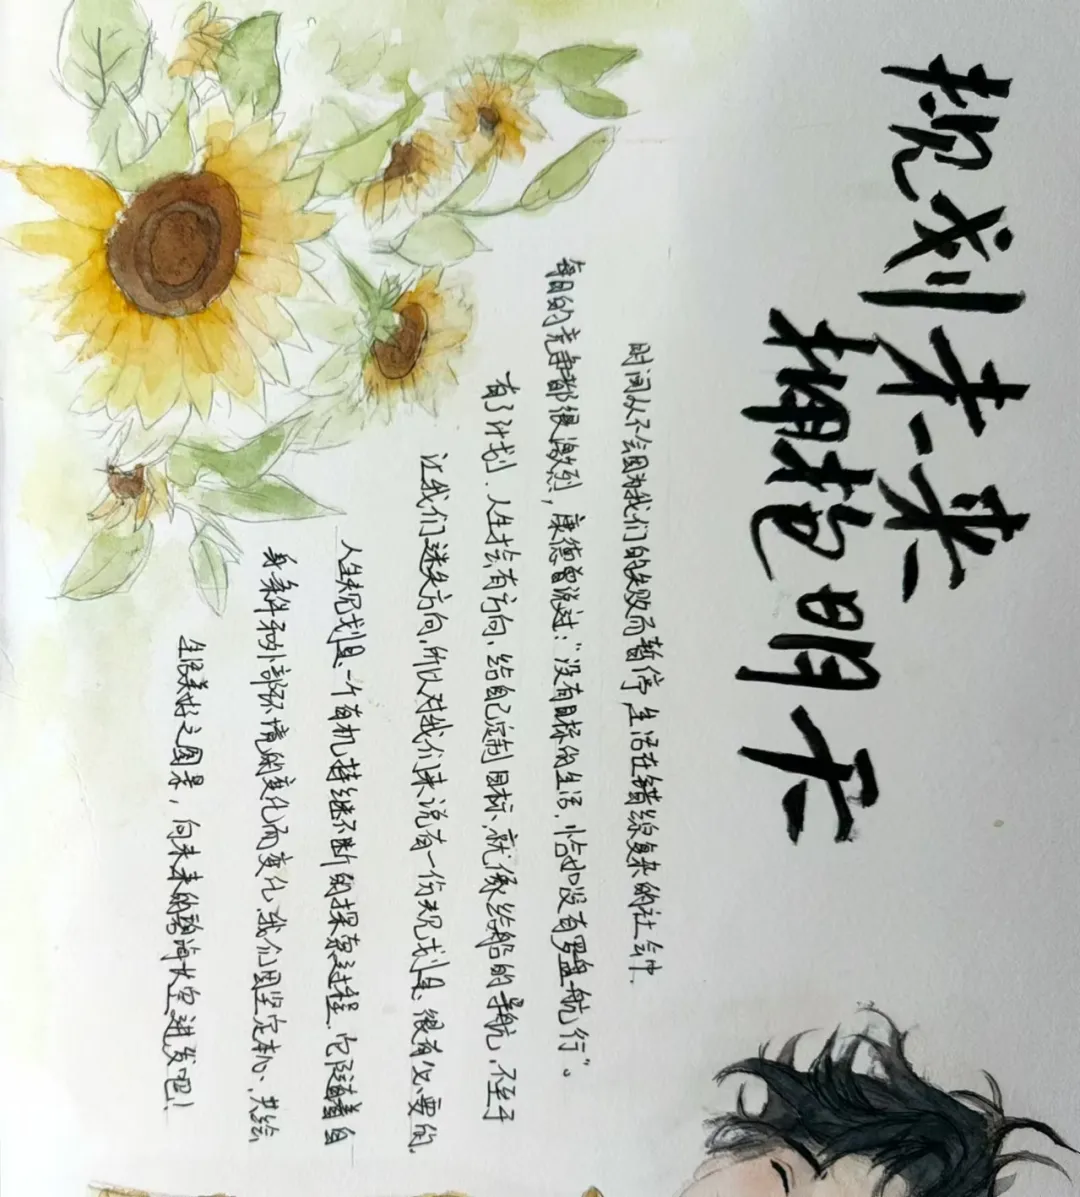 规划未来
拥抱明天
时间从不会因为我们的失败而暂停,生活在错综复杂的社会中,
每日的竞争都很激烈,康德曾说过:“没有目标的生活,恰如没有罗盘航行”。
有了计划.人生会有方向,给自己定制目标,就像给船的导航,不至于
让我们迷失方向,所以对我们来说有一份规划是很有必要的.
人生规划是一个有机持继不断的探索过程.它随着自
身条件和外部环境的变化而变化.我们因坚定本心,共绘
生活美好之图景,向未来的 大空进发吧!